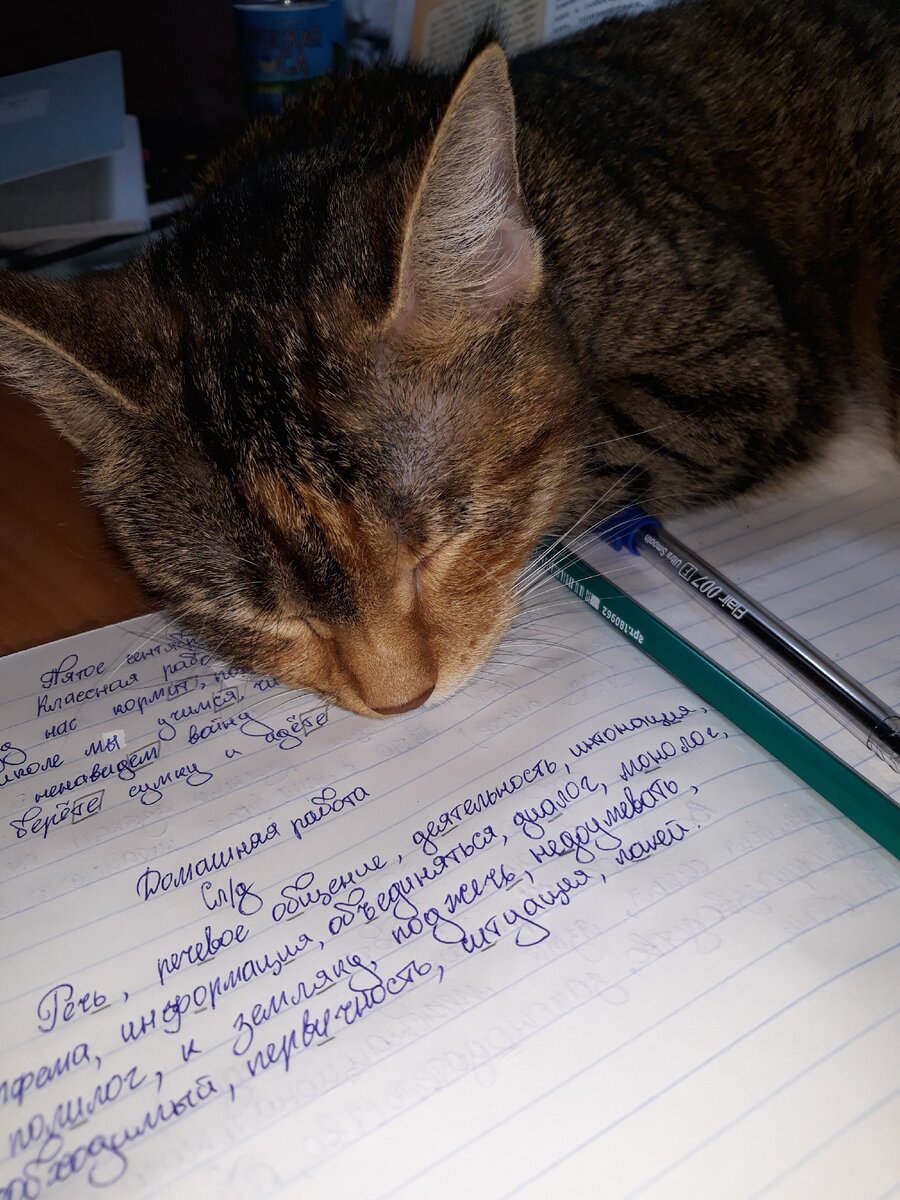 Пятое сентября
Классная раб
нас кормит, по
школе мы учимся, чи
ненавидем войну
берёте сумку и идёте
Домашняя работа
Сл/д
Речь, речевое общение, деятельность, интонация,
информация, объединяться, диалог, монолог,
полилог, к земляку, поджечь, недоумевать,
первичность, ситуация, пахей.
Flair 007 F Ultra Smooth
арт.1809962